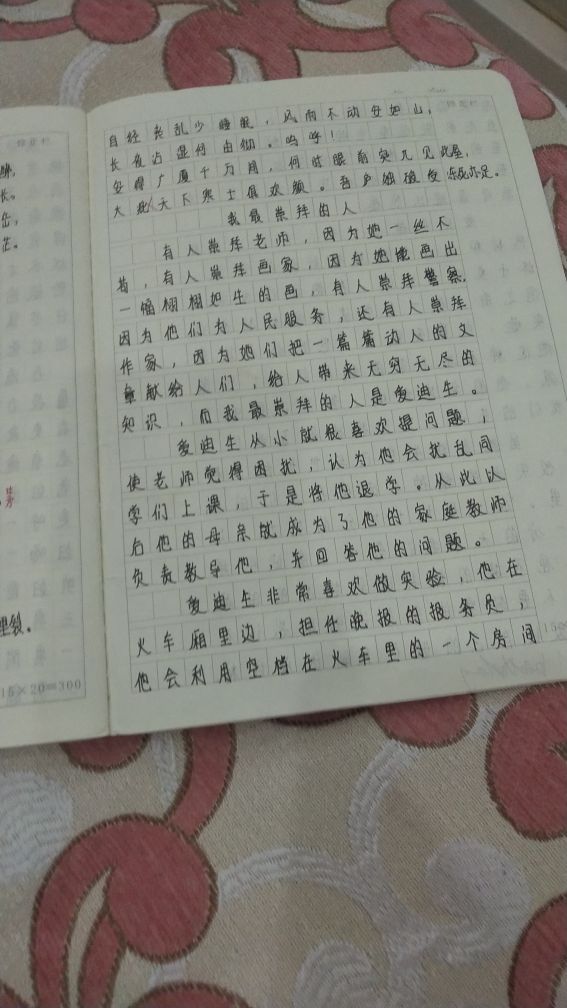 自经丧乱少睡眠,风雨不动安如山,
长夜沾湿何由彻。呜呼!
安得广厦千万间,何时眼前突兀见此屋,
大庇天下寒士俱欢颜。吾庐独破受冻死亦足。
我最崇拜的人
有人崇拜老师,因为她一丝不
苟,有人崇拜画家,因为她能画出
一幅栩栩如生的画,有人崇拜警察,
因为他们为人民服务,还有人崇拜
作家,因为她们把一篇篇动人的文
章献给人们,给人带来无穷无尽的
知识,而我最崇拜的人是爱迪生。
爱迪生从小就很喜欢提问题,
使老师觉得困扰,认为他会扰乱同
学们上课,于是将他退学。从此以
后他的母亲就成为了他的家庭教师
负责教导他,并回答他的问题。
爱迪生非常喜欢做实验,他在
火车厢里边,担任晚报的报务员,
他会利用空档在火车里的一个房间
长。
芒。
裂。
15×20=300